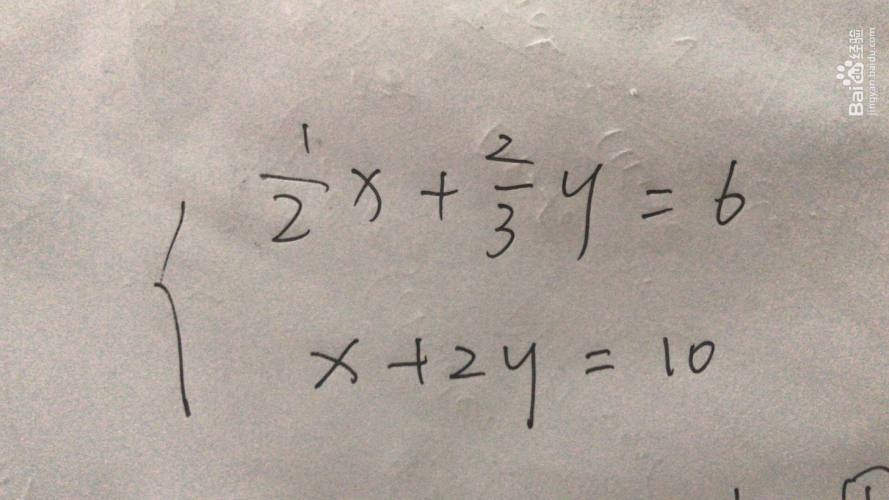 1/2 x + 2/3 y = 6
x + 2y = 10
Baidu经验
jingyan.baidu.com